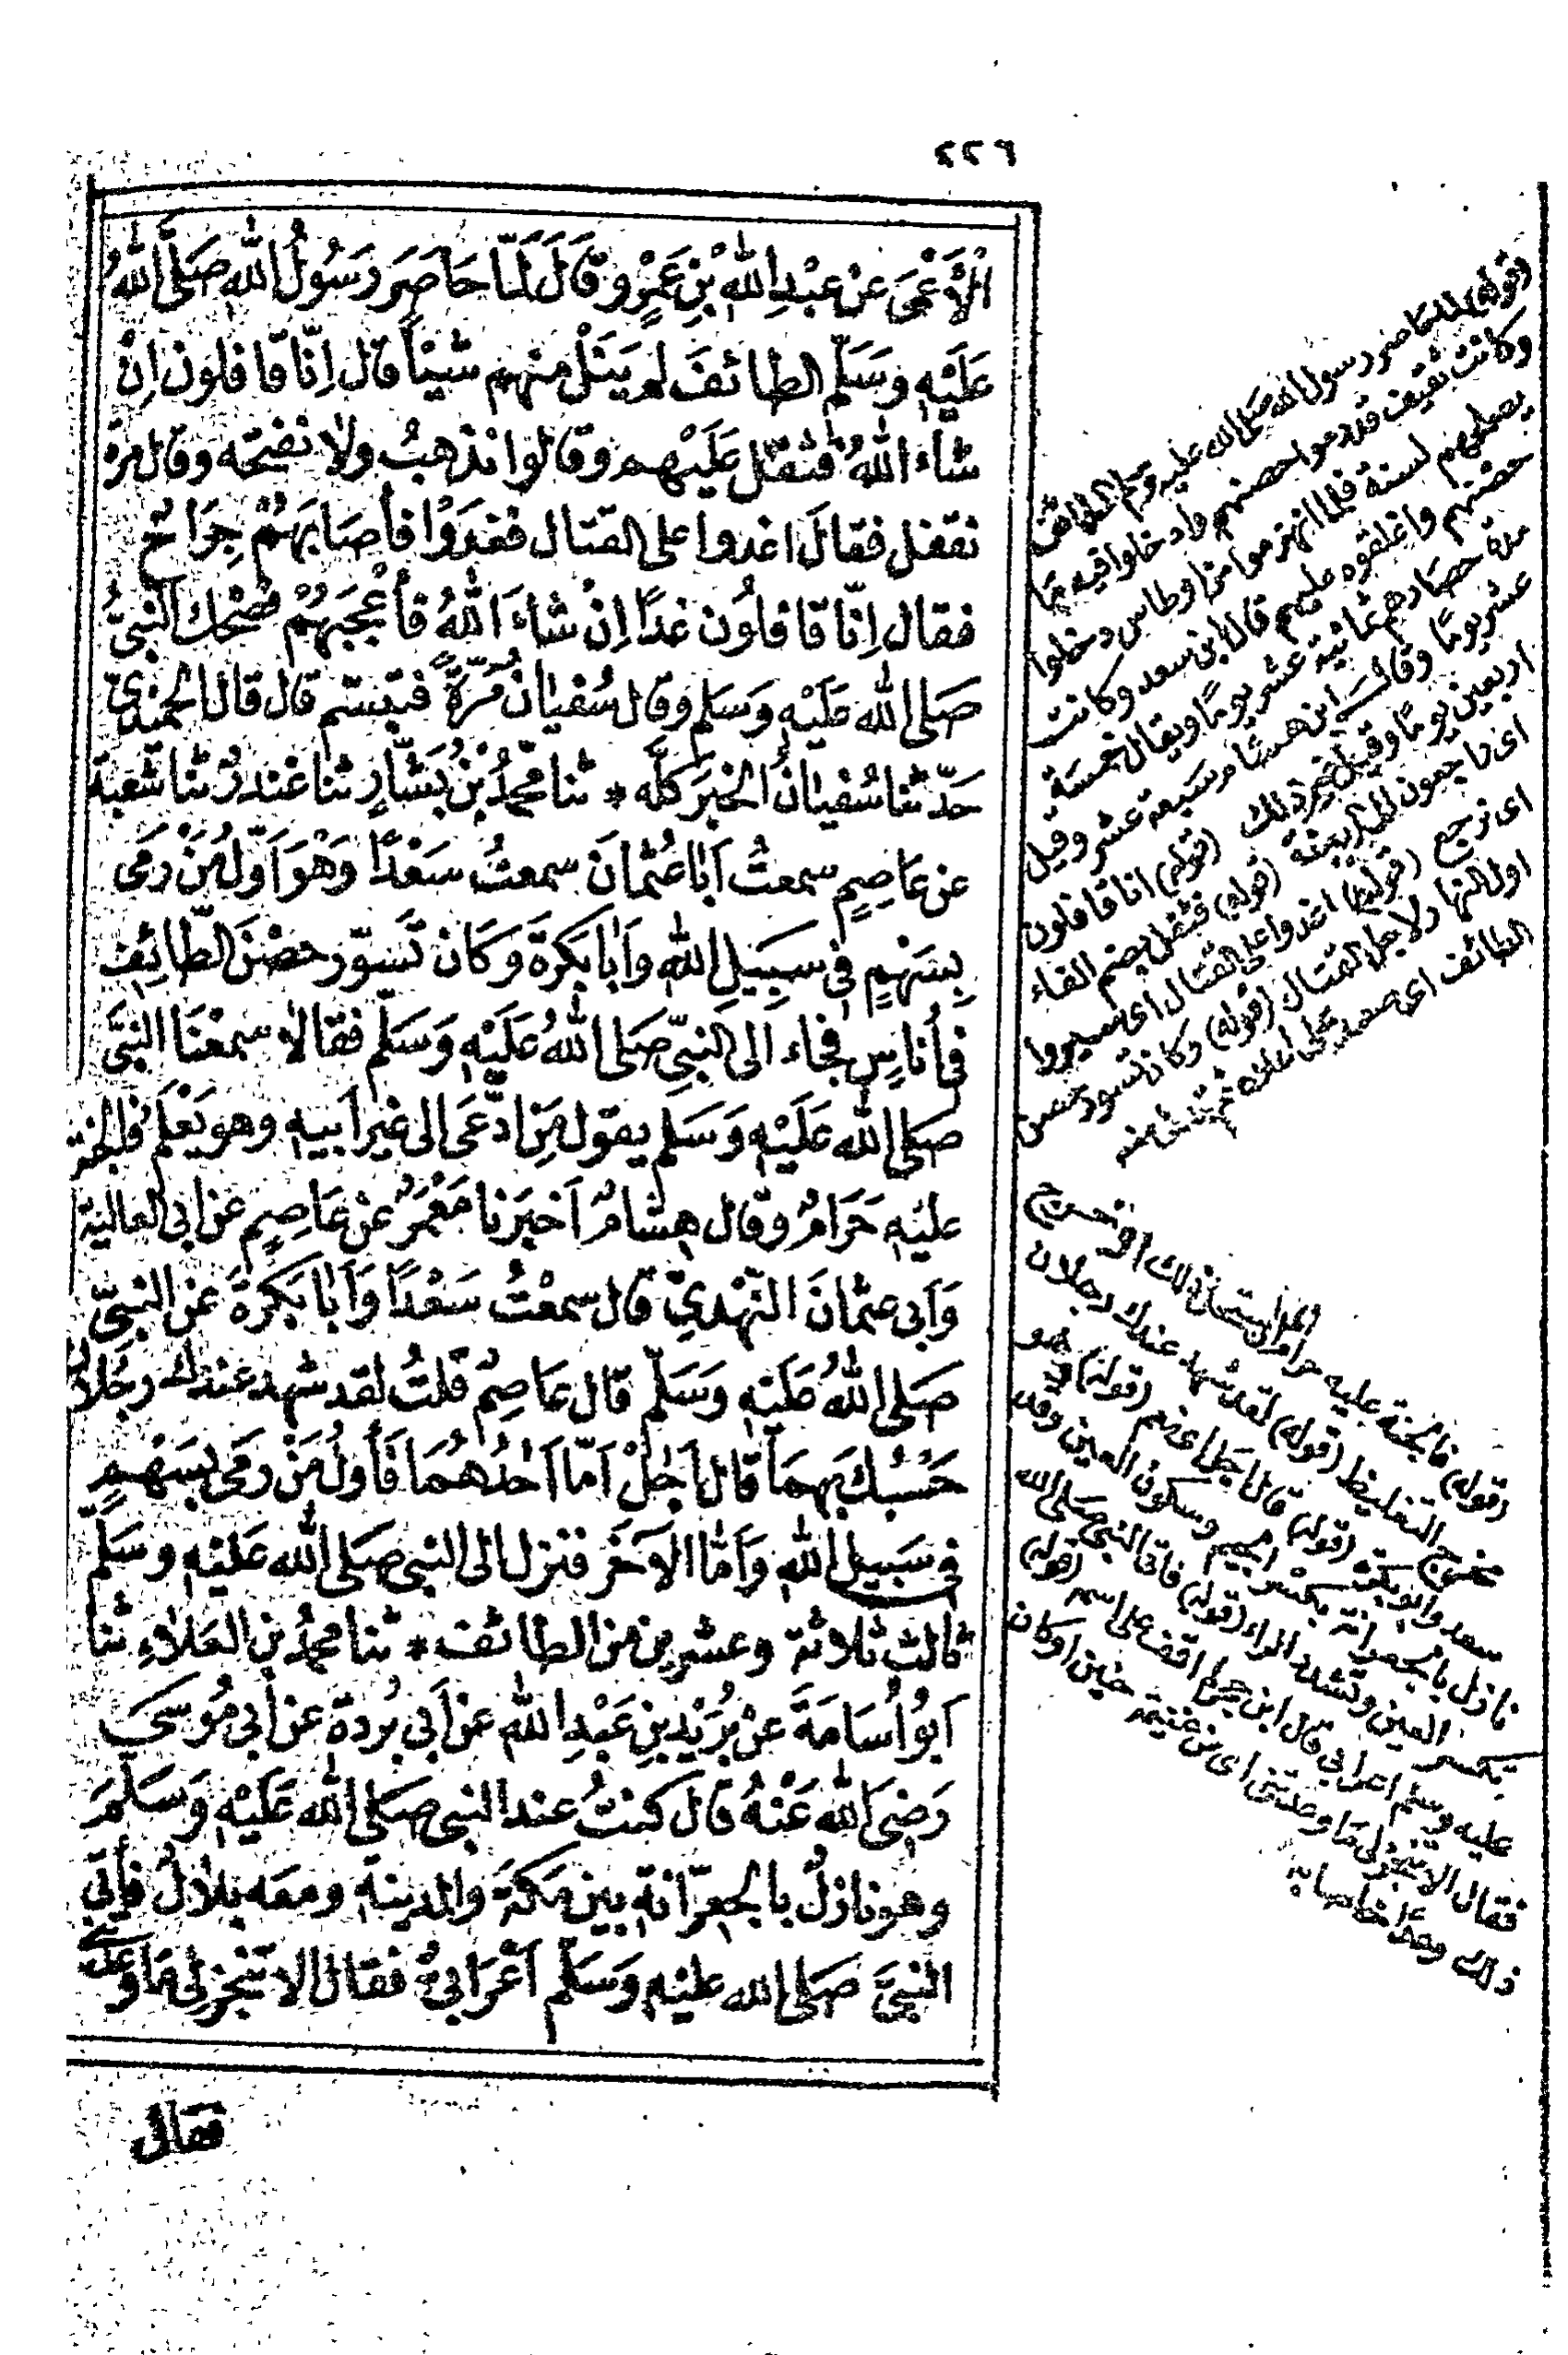 ٢٢٦
الْأَعْمَى عَنْ عَبْدِ اللهِ بْنِ عَمْرٍو قَالَ لَمَّا حَاصَرَ رَسُولُ اللهِ صَلَّى اللهُ
عَلَيْهِ وَسَلَّم الطائفَ لم يَنَلْ منهم شيئاً قال اِنَّا قافلون اِنْ
شاءَ اللهُ فثقل عَلَيْهم وقالوا نذهبُ ولا نفتحه وقال مرة
نقفل فقالَ اغدوا على القتال فغدَوْا فأصَابَهُمْ جِرَاحٌ
فقال اِنَّا قافلُون غداً اِنْ شاءَ اللهُ فأعْجَبَهُمْ فضحك النبيُّ
صَلى الله عَلَيْهِ وَسَلم وقال سُفيانُ مَرّةً فتبسّم قال قال الحميدي
حَدّثنا سُفيانُ الخبرَ كلَّه * ثنا محمدُ بنُ بَشَّارٍ ثنا غندرٌ ثنا شعبة
عن عَاصِمٍ سمعتُ اَبا عُثمانَ سمعتُ سَعْداً وَهْوَ اَوّلُ مَنْ رَمَى
بِسَهْمٍ في سبيلِ اللهِ وَاَبا بَكرَةَ وَكَان تَسَوّرَ حصْنَ الطَّائِفِ
في أُناسٍ فجاء الى النبيّ صَلى اللهُ عَلَيْهِ وَسَلم فقالا سمعْنَا النبيَّ
صَلى الله عَلَيْهِ وَسَلم يقول مَنِ ادّعَى الى غير اَبيه وهو يَعْلَمُ فالجنة
عليْهِ حَرَامٌ وقال هِشامٌ اَخبَرَنا مَعْمَرٌ عن عَاصِمٍ عن ابى العالية
وَاَبى عثمانَ النَّهْديّ قال سمعْتُ سَعْداً وَاَبا بَكرَةَ عن النبيّ
صَلى اللهُ عَلَيْهِ وَسَلّم قال عَاصِمٌ قلتُ لقد شهد عندك رجُلان
حَسْبُك بهمَا قال اَجَلْ اَمّا اَحَدُهُمَا فَأَولُ مَنْ رَمَى بسَهْمٍ
فى سَبيل اللهِ وَاَمّا الآخَر فنزل الى النبى صَلى الله عَلَيْهِ وسَلَّم
ثالث ثلاثة وعشرين من الطائف * ثنا محمدُ بن العَلاءِ ثنا
اَبُو اُسَامَةَ عنْ بُرَيْدِ بنِ عَبْدِ الله عن اَبي بُردةَ عن اَبي مُوسَى
رَضيَ اللهُ عَنْهُ قال كنتُ عند النبى صَلى الله عَلَيْهِ وَسَلَّمَ
وهو نازلٌ بالجعرّانة بين مَكةَ والمدينة ومعه بلالٌ فأتى
النبيَّ صَلى الله عليْهِ وَسَلَّم اَعْرَابىٌّ فقال الا تنجزلى مَا وعدتنى
فقال
(قوله) لما حاصر رسول الله صَلى الله عليه وسَلم الطائف
وكانت ثقيف قد رموا حصنهم وادخلوا فيه مَا
يصلحهم لسنة فلما انهزموا من اوطاس دخلوا
حصنهم واغلقوه عليهم قال ابن سعد وكانت
مدة حصارهم ثمانية عشر يومًا ويقال خمسَة
عشر يومًا وقال ابن هشام سَبعة عشر وقيل
اربعين يومًا وقيل غير ذلك (قوله) انا قافلون
اى راجعون للمدينة (قوله) فثقل بضم القاف
اى نرجع (قوله) اغدوا على القتال اى سيروا
اول النهار لاجل القتال (قوله) وكان تسور حصن
الطائف اى صعد على اعلاه
(قوله) فالجنة عليه حرام اى ان استحل ذلك او خرج
مخرج التغليظ (قوله) لقد شهد عندك رجلان
سعد وابو بكرة (قوله) قال اجل اى نعم (قوله) وهو
نازل بالجعرانة بكسر الجيم وسكون العين وقد
تكسر العين وتشدد الراء (قوله) فاتى النبى صَلى الله
عليه وسلم اعرابى قال ابن حجر لم اقف على اسمه (قوله)
فقال الا تنجزلى مَا وعدتنى اى من غنيمة حنين اوكان
ذلك وعدًا خاصا به